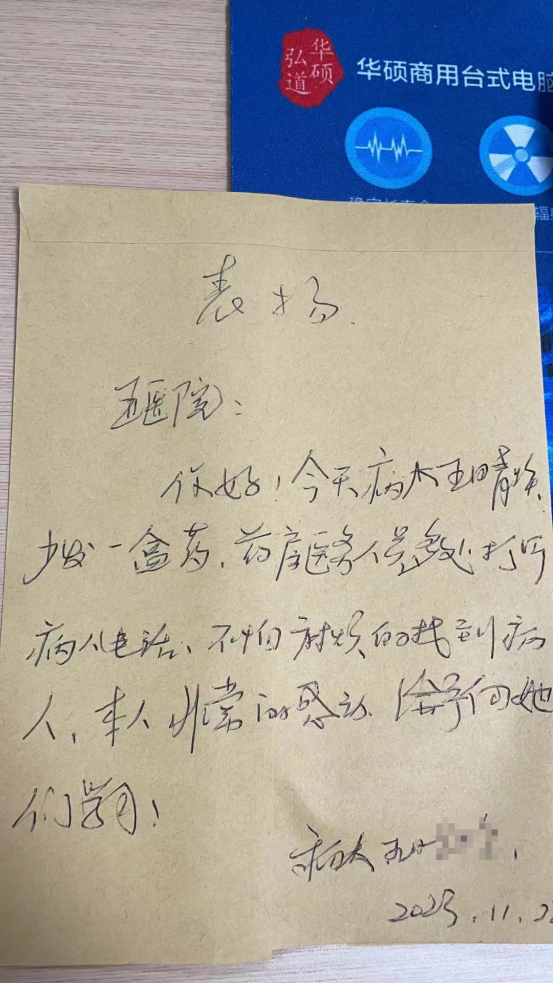 华硕
弘道
华硕商用台式电脑
表扬
五医院：
你好！今天病人王晴
少发一盒药，药房医务人员多处打听
病人电话、不怕麻烦的找到病
人，本人非常的感动，向她
们学习！
2023.11.2